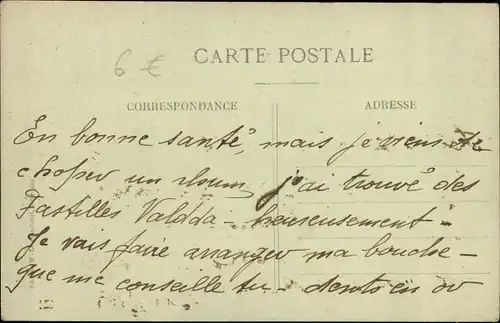 6 €
CARTE POSTALE
CORRESPONDANCE
ADRESSE
En bonne santé, mais je viens de
choper un rhum, j'ai trouvé des
Pastilles Valdda - heureusement -
Je vais faire arranger ma bouche -
que me conseille tu - dents en or